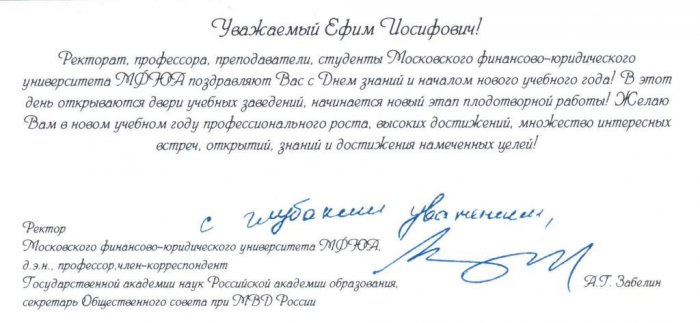 Уважаемый Ефим Иосифович!
Ректорат, профессора, преподаватели, студенты Московского финансово-юридического
университета МФЮА поздравляют Вас с Днем знаний и началом нового учебного года! В этот
день открываются двери учебных заведений, начинается новый этап плодотворной работы! Желаю
Вам в новом учебном году профессионального роста, высоких достижений, множество интересных
встреч, открытий, знаний и достижения намеченных целей!
с глубоким уважением,
Ректор
Московского финансово-юридического университета МФЮА,
д.э.н., профессор,член-корреспондент
Государственной академии наук Российской академии образования,
секретарь Общественного совета при МВД России
А.Г. Забелин